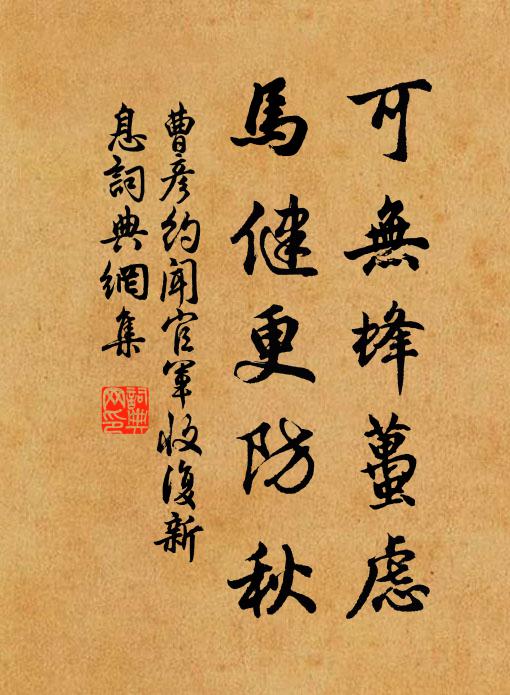 可無蜂蠆慮
馬健更防秋
曹彥約聞官軍收復新
息詞典網集
詞典
网印